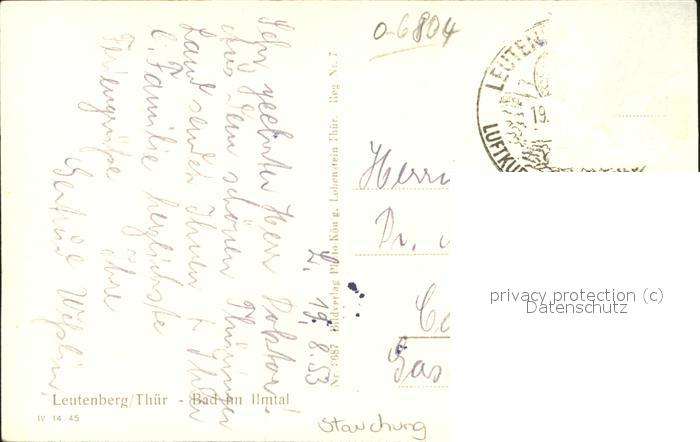 o-6804
L. 19.8.53
Sehr geehrter Herr Doktor!
Aus dem schönen Thüringer
Land sendet Ihnen u. Ihrer
l. Familie herzlichste
Feriengrüße
Ihre
Gertrud
Nr 7687 Bildverlag Photo König, Lobenstein Thür. Reg Nr. 7
LEUTEN
19.
LUFTKU
Herrn
Dr.
privacy protection (c)
Datenschutz
Leutenberg/Thür - Bad im Ilmtal
IV 14/45
Stauchung